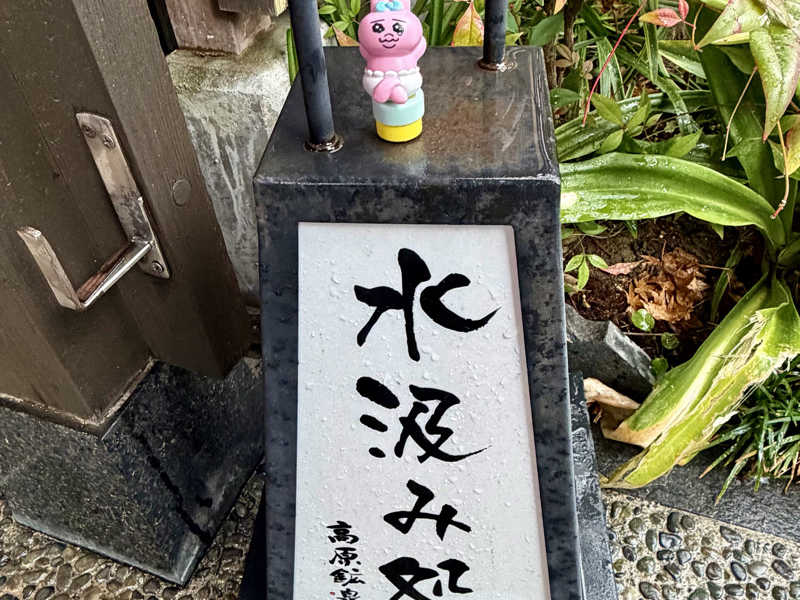 水汲み処
高原鉱泉